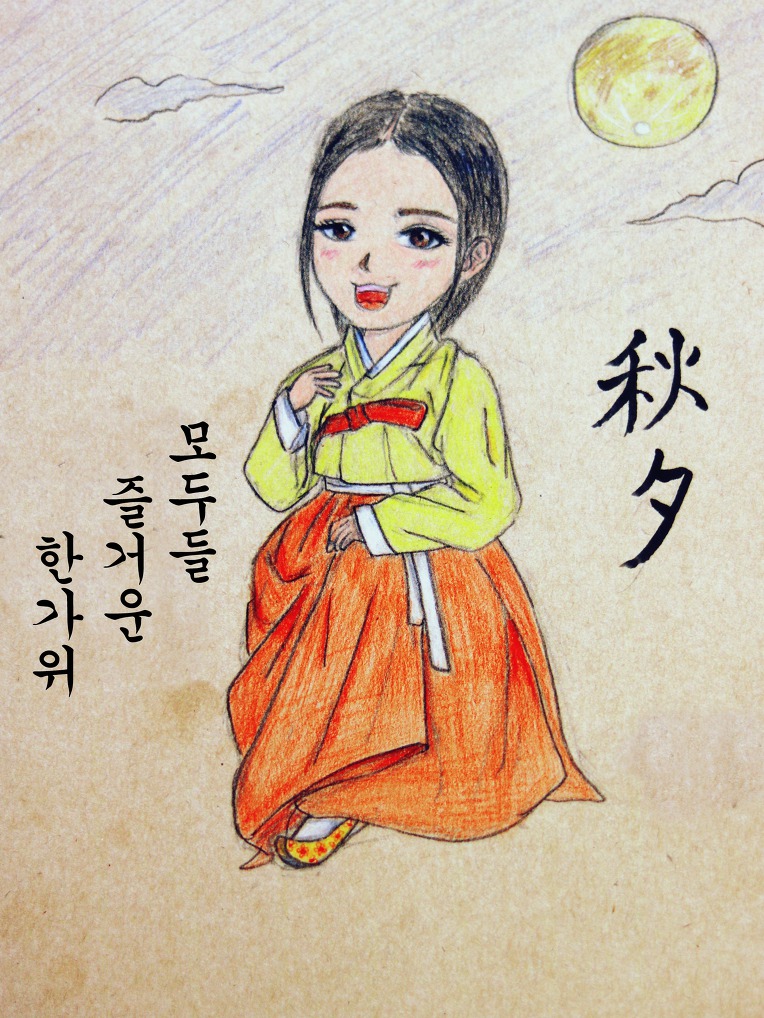 秋夕
모두들
즐거운
한가위